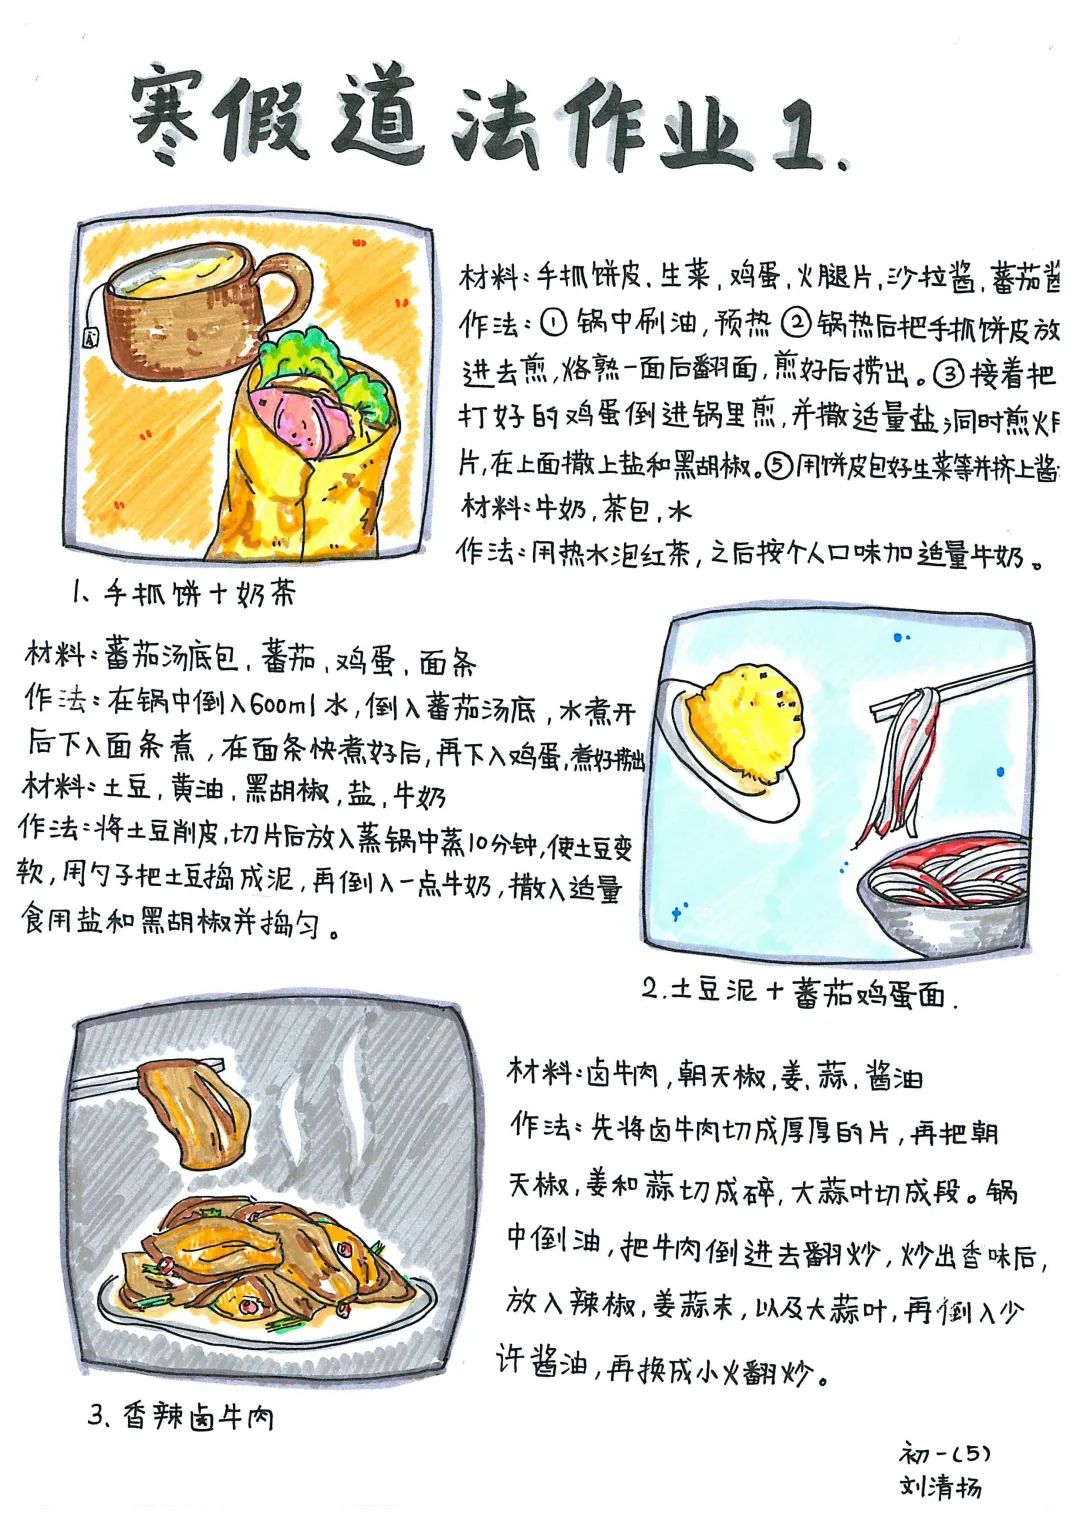 寒假道法作业1.
材料:手抓饼皮、生菜,鸡蛋,火腿片,沙拉酱,蕃茄酱
作法:①锅中刷油,预热②锅热后把手抓饼皮放
进去煎,烙熟一面后翻面,煎好后捞出。③接着把
打好的鸡蛋倒进锅里煎,并撒适量盐;同时煎火
片,在上面撒上盐和黑胡椒。⑤用饼皮包好生菜等并挤上酱
材料:牛奶,茶包,水
作法:用热水泡红茶,之后按个人口味加适量牛奶。
1、手抓饼+奶茶
材料:蕃茄汤底包,蕃茄,鸡蛋,面条
作法:在锅中倒入600ml水,倒入蕃茄汤底,水煮开
后下入面条煮,在面条快煮好后,再下入鸡蛋,煮好捞出
材料:土豆,黄油,黑胡椒,盐,牛奶
作法:将土豆削皮,切片后放入蒸锅中蒸10分钟,使土豆变
软,用勺子把土豆捣成泥,再倒入一点牛奶,撒入适量
食用盐和黑胡椒并捣匀。
2.土豆泥+蕃茄鸡蛋面.
材料:卤牛肉,朝天椒,姜,蒜,酱油
作法:先将卤牛肉切成厚厚的片,再把朝
天椒,姜和蒜切成碎,大蒜叶切成段。锅
中倒油,把牛肉倒进去翻炒,炒出香味后,
放入辣椒,姜蒜末,以及大蒜叶,再倒入少
许酱油,再换成小火翻炒。
3、香辣卤牛肉
初一(5)
刘清扬